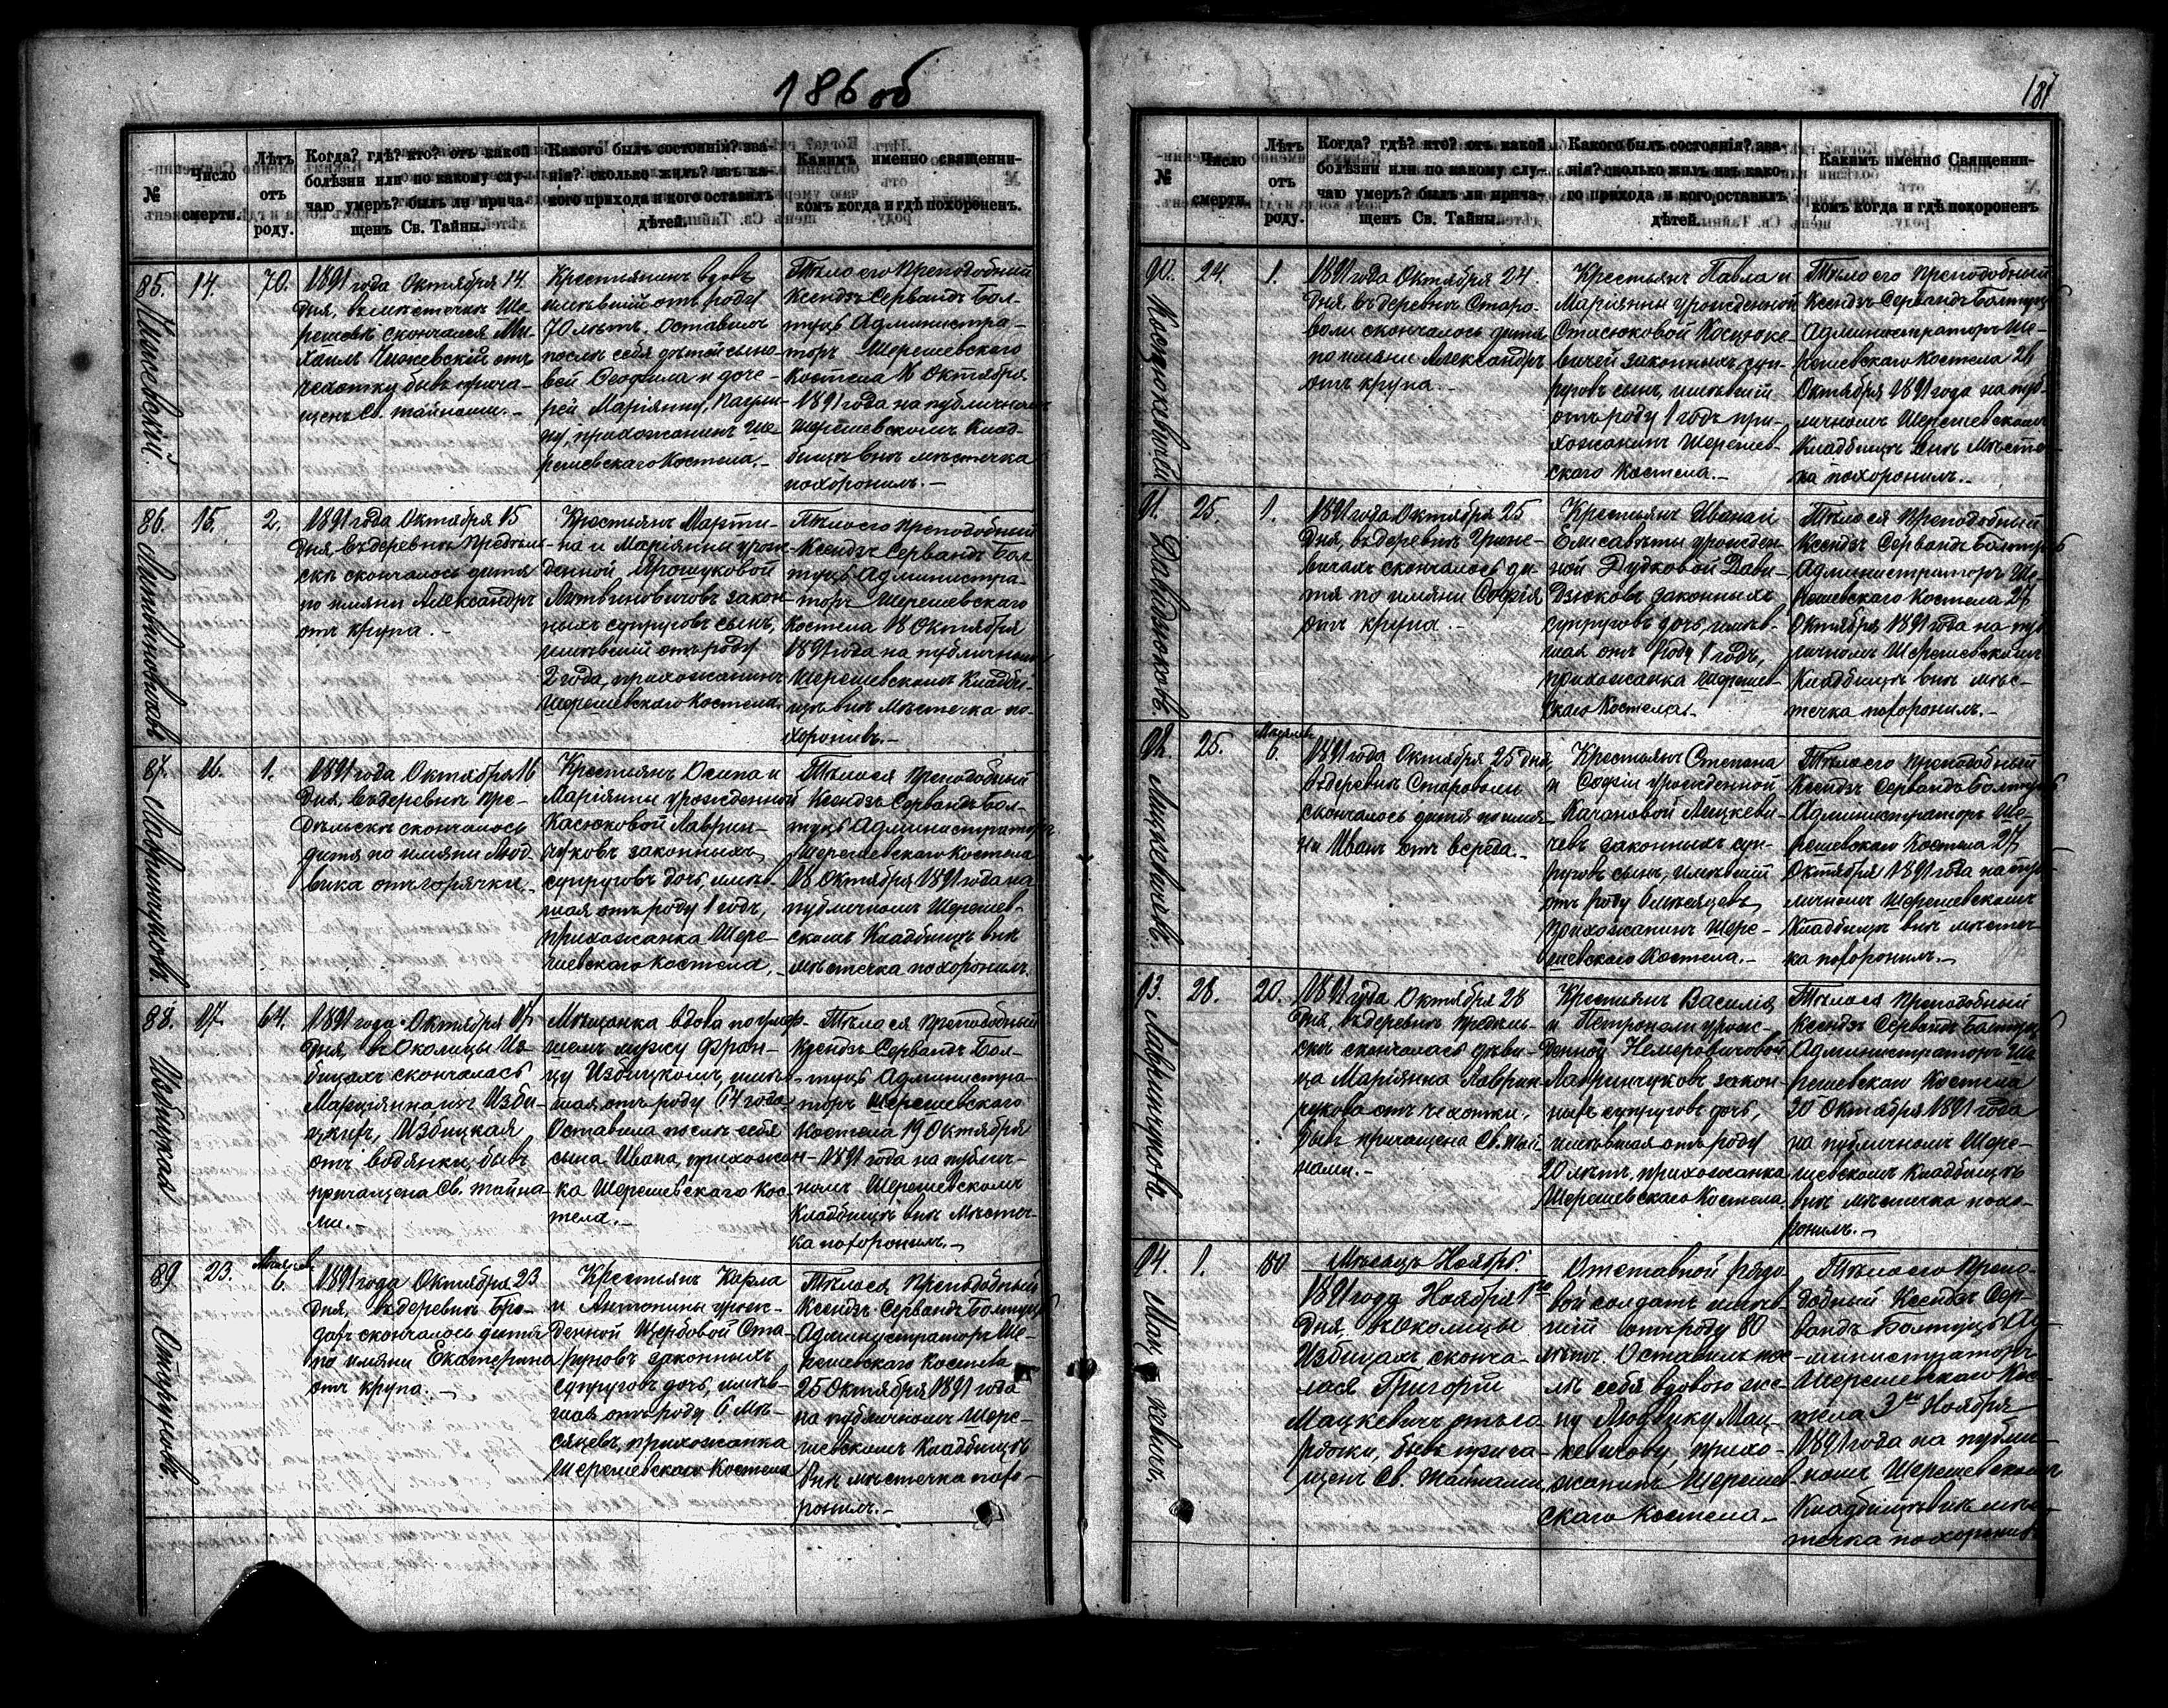 186 об
№
Число
смерти.
Лѣтъ
отъ
роду.
Когда? гдѣ? кто? отъ какой
болѣзни или по какому слу-
чаю умеръ? былъ ли прича-
щенъ Св. Тайны.
Какого былъ состоянія? зва-
нія? сколько жилъ? изъ ка-
кого прихода и кого оставилъ
дѣтей.
Какимъ именно священни-
комъ когда и гдѣ похороненъ.
85.
14.
70.
1891 года Октября 14
дня, въ мѣстечкѣ Ше-
решевѣ скончался Ми-
хаилъ Чижевскій отъ
чехотку бывъ прича-
щенъ Св. тайнами.-
Крестьянинъ вдовъ
имѣвшій отъ роду
70 лѣтъ. Оставилъ
послѣ себя дѣтей сыно-
вей Феофила и доче-
рей Маріянну, Паули-
ну, прихожанинъ Ше-
решевскаго Костела.-
Тѣло его Преподобный
Ксендзъ Сервандъ Бол-
туць Администра-
торъ Шерешевскаго
Костела 16 Октября
1891 года на публичномъ
Шерешевскомъ Клад-
бищѣ внѣ мѣстечка
похоронилъ.-
86.
15.
2.
1891 года Октября 15
дня, въ деревнѣ Предѣль-
скѣ скончалось дитя
по имяни Александръ
отъ крупа.-
Крестьянъ Марти-
на и Маріянны урож-
денной Ярошуковой
Литвиновичовъ закон-
ныхъ супруговъ сынъ,
имѣвшій отъ роду
2 года, прихожанинъ
Шерешевскаго Костела.
Тѣло его Преподобный
Ксендзъ Сервандъ Бол-
туць Администра-
торъ Шерешевскаго
Костела 18 Октября
1891 года на публичномъ
Шерешевскомъ Кладби-
щѣ внѣ Мѣстечка по-
хоронилъ.-
87.
Лавринчуковъ.
16.
1.
1891 года Октября 16
дня, въ деревнѣ Пре-
дѣльскѣ скончалось
дитя по имяни Люд-
вика отъ горячки.-
Крестьянъ Осипа и
Маріянны урожденной
Касюковой Лаврин-
чуковъ законныхъ
супруговъ дочь, имѣв-
шая отъ роду 1 годъ,
прихожанка Шере-
шевскаго Костела.-
Тѣло ея Преподобный
Ксендзъ Сервандъ Бол-
туць Администраторъ
Шерешевскаго Костела
18 Октября 1891 года на
публичномъ Шерешев-
скомъ Кладбищѣ внѣ
мѣстечка похоронилъ.
88.
Избицкая
17.
64.
1891 года Октября 17
дня, въ Околицы Из-
бицахъ скончалась
Марціянна изъ Изби-
цкихъ, Избицкая
отъ водянки, бывъ
причащена Св. тайна-
ми.-
Мѣщанка вдова по умер-
шемъ мужу Фран-
цу Избицкомъ, имѣв-
шая отъ роду 64 года
Оставила послѣ себя
сына Ивана, прихожан-
ка Шерешевскаго Кос-
тела.-
Тѣло ея Преподобный
Ксендзъ Сервандъ Бол-
туць Администра-
торъ Шерешевскаго
Костела 19 Октября
1891 года на публич-
номъ Шерешевскомъ
Кладбищѣ внѣ Мѣстеч-
ка похоронилъ.-
89.
23.
6.
1891 года Октября 23
дня, въ деревнѣ Бро-
дахъ скончалось дитя
по имяни Екатерина
отъ крупа.-
Крестьянъ Карла
и Антонины урож-
денной Щербовой Ста-
руновъ законныхъ
супруговъ дочь, имѣв-
шая отъ роду 6 мѣ-
сяцевъ, прихожанка
Шерешевскаго Костела
Тѣло ея Преподобный
Ксендзъ Сервандъ Болтуць
Администраторъ Ше-
решевскаго Костела
25 Октября 1891 года
на публичномъ Шере-
шевскомъ Кладбищѣ
внѣ мѣстечка похо-
ронилъ.-
187
№
Число
смерти
Лѣтъ
отъ
роду.
Когда? гдѣ? кто? отъ какой
болѣзни или по какому слу-
чаю умеръ? былъ ли прича-
щенъ Св. Тайны.
Какого былъ состоянія? зва-
нія? сколько жилъ изъ како-
го прихода и кого оставилъ
дѣтей.
Какимъ именно Священни-
комъ когда и гдѣ похороненъ
90.
24.
1.
1891 года Октября 24
дня, въ деревнѣ Старо-
воли скончалось дитя
по имяни Александръ
отъ крупа.-
Крестьянъ Павла и
Маріянны урожденной
Стасюковой Косцюке-
вичей законныхъ суп-
руговъ сынъ, имѣвшій
отъ роду 1 годъ при-
хожанинъ Шерешев-
скаго Костела.-
Тѣло его Преподобный
Ксендзъ Сервандъ Болтуць
Администраторъ Ше-
решевскаго Костела 26
Октября 1891 года на пуб-
личномъ Шерешевскомъ
Кладбищѣ внѣ Мѣстеч-
ка похоронилъ.-
91.
Давидзюковъ
25.
1.
1891 года Октября 25
дня, въ деревнѣ Грине-
вичахъ скончалось ди-
тя по имяни Софія
отъ крупа.-
Крестьянъ Ивана и
Елисаветы урожден-
ной Дудковой Дави-
дзюковъ законныхъ
супруговъ дочь, имѣв-
шая отъ роду 1 годъ,
прихожанка Шерешев-
скаго Костела.-
Тѣло ея Преподобный
Ксендзъ Сервандъ Болтуць
Администраторъ Ше-
решевскаго Костела 27
Октября 1891 года на пуб-
личномъ Шерешевскомъ
Кладбищѣ внѣ мѣс-
течка похоронилъ.-
92.
Мицкевичевъ.
25.
6.
1891 года Октября 25 дня,
въ деревнѣ Староволи
скончалось дитя по имя-
ни Иванъ отъ вереда.-
Крестьянъ Степана
и Софіи урожденной
Качановой Мицкеви-
чевъ законныхъ суп-
руговъ сынъ, имѣвшій
отъ роду 6 мѣсяцевъ,
прихожанинъ Шере-
шевскаго Костела.-
Тѣло его Преподобный
Ксендзъ Сервандъ Болтуць
Администраторъ Ше-
решевскаго Костела 27
Октября 1891 года на пуб-
личномъ Шерешевскомъ
Кладбищѣ внѣ мѣстеч-
ка похоронилъ.-
93.
Лавринчукова
28.
20.
1891 года Октября 28
дня, въ деревнѣ Предѣль-
скѣ скончалась дѣви-
ца Маріянна Лаврин-
чукова отъ чехотки,
бывъ причащена Св. тай-
нами.-
Крестьянъ Василія
и Петронели урож-
денной Немеровичовой
Лавринчуковъ закон-
ныхъ супруговъ дочь,
имѣвшая отъ роду
20 лѣтъ, прихожанка
Шерешевскаго Костела.
Тѣло ея Преподобный
Ксендзъ Сервандъ Болтуць
Администраторъ Ше-
решевскаго Костела
30 Октября 1891 года
на публичномъ Шере-
шевскомъ Кладбищѣ
внѣ мѣстечка похо-
ронилъ.-
94.
Мацкевичъ.
1.
80
Мѣсяцъ Ноябрь
1891 года Ноября 1го
дня, въ околицы
Избицахъ сконча-
лся Григорій
Мацкевичъ отъ го-
рячки, бывъ прича-
щенъ Св. тайнами,
Отставной рядо-
вой солдатъ имѣв-
шій отъ роду 80
лѣтъ. Оставилъ пос-
лѣ себя вдовою же-
ну Людвику Мац-
кевичову, прихо-
жанинъ Шерешев-
скаго Костела.-
Тѣло его Препо-
добный Ксендзъ Сер-
вандъ Болтуць Ад-
министраторъ
Шерешевскаго Кос-
тела 3го Ноября
1891 года на публи-
чномъ Шерешевскомъ
Кладбищѣ внѣ мѣс-
течка похоронилъ